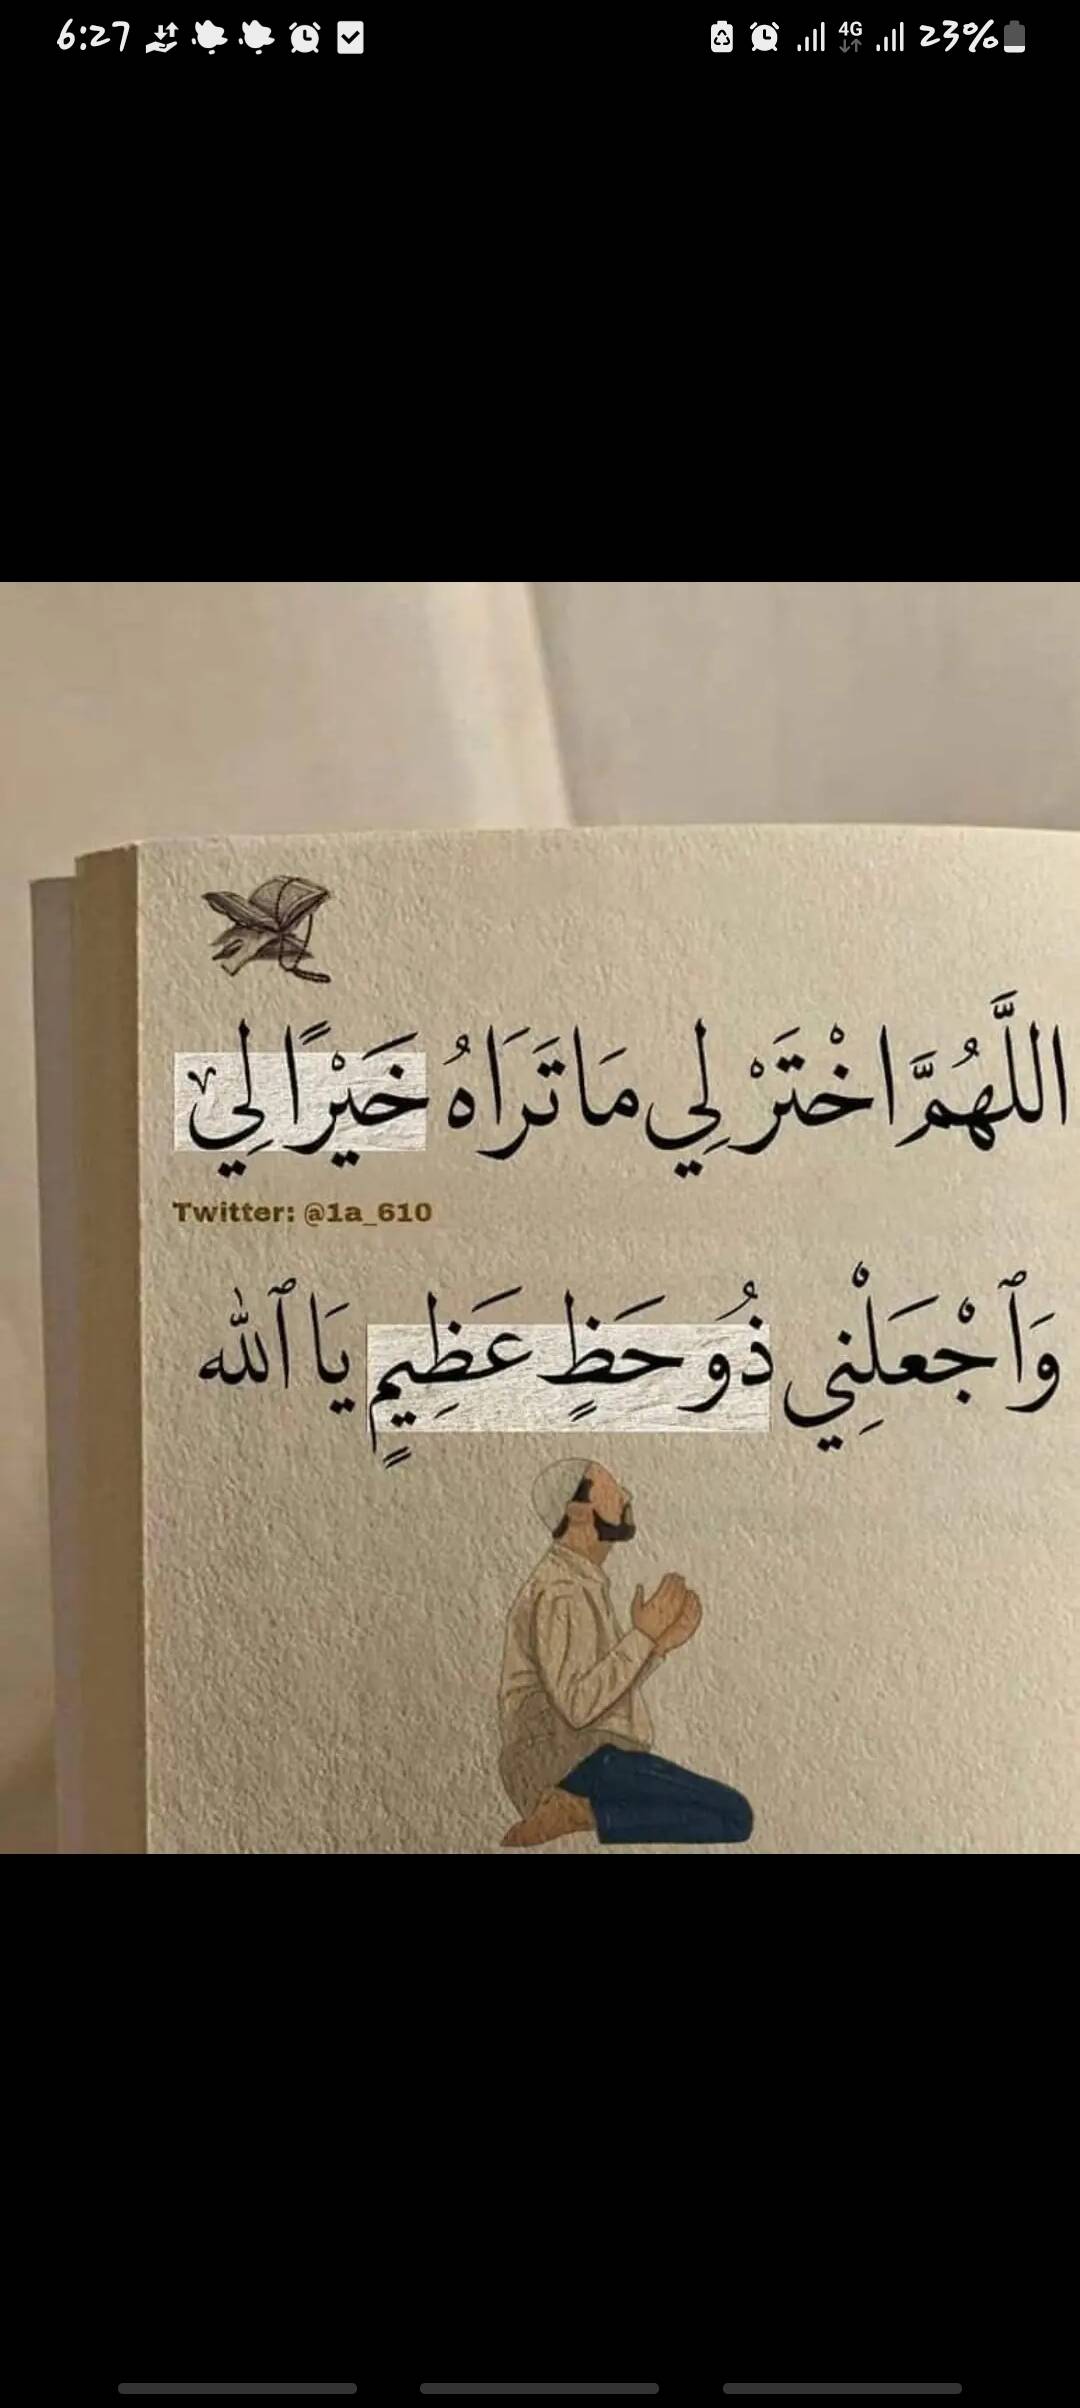 6:27 4G 23%
اللَّهُمَّ اخْتَرْ لِي مَا تَرَاهُ خَيْرًا لِي
Twitter: @1a_610
وَٱجْعَلْنِي ذُو حَظٍ عَظِيمٍ يَا ٱللّٰه